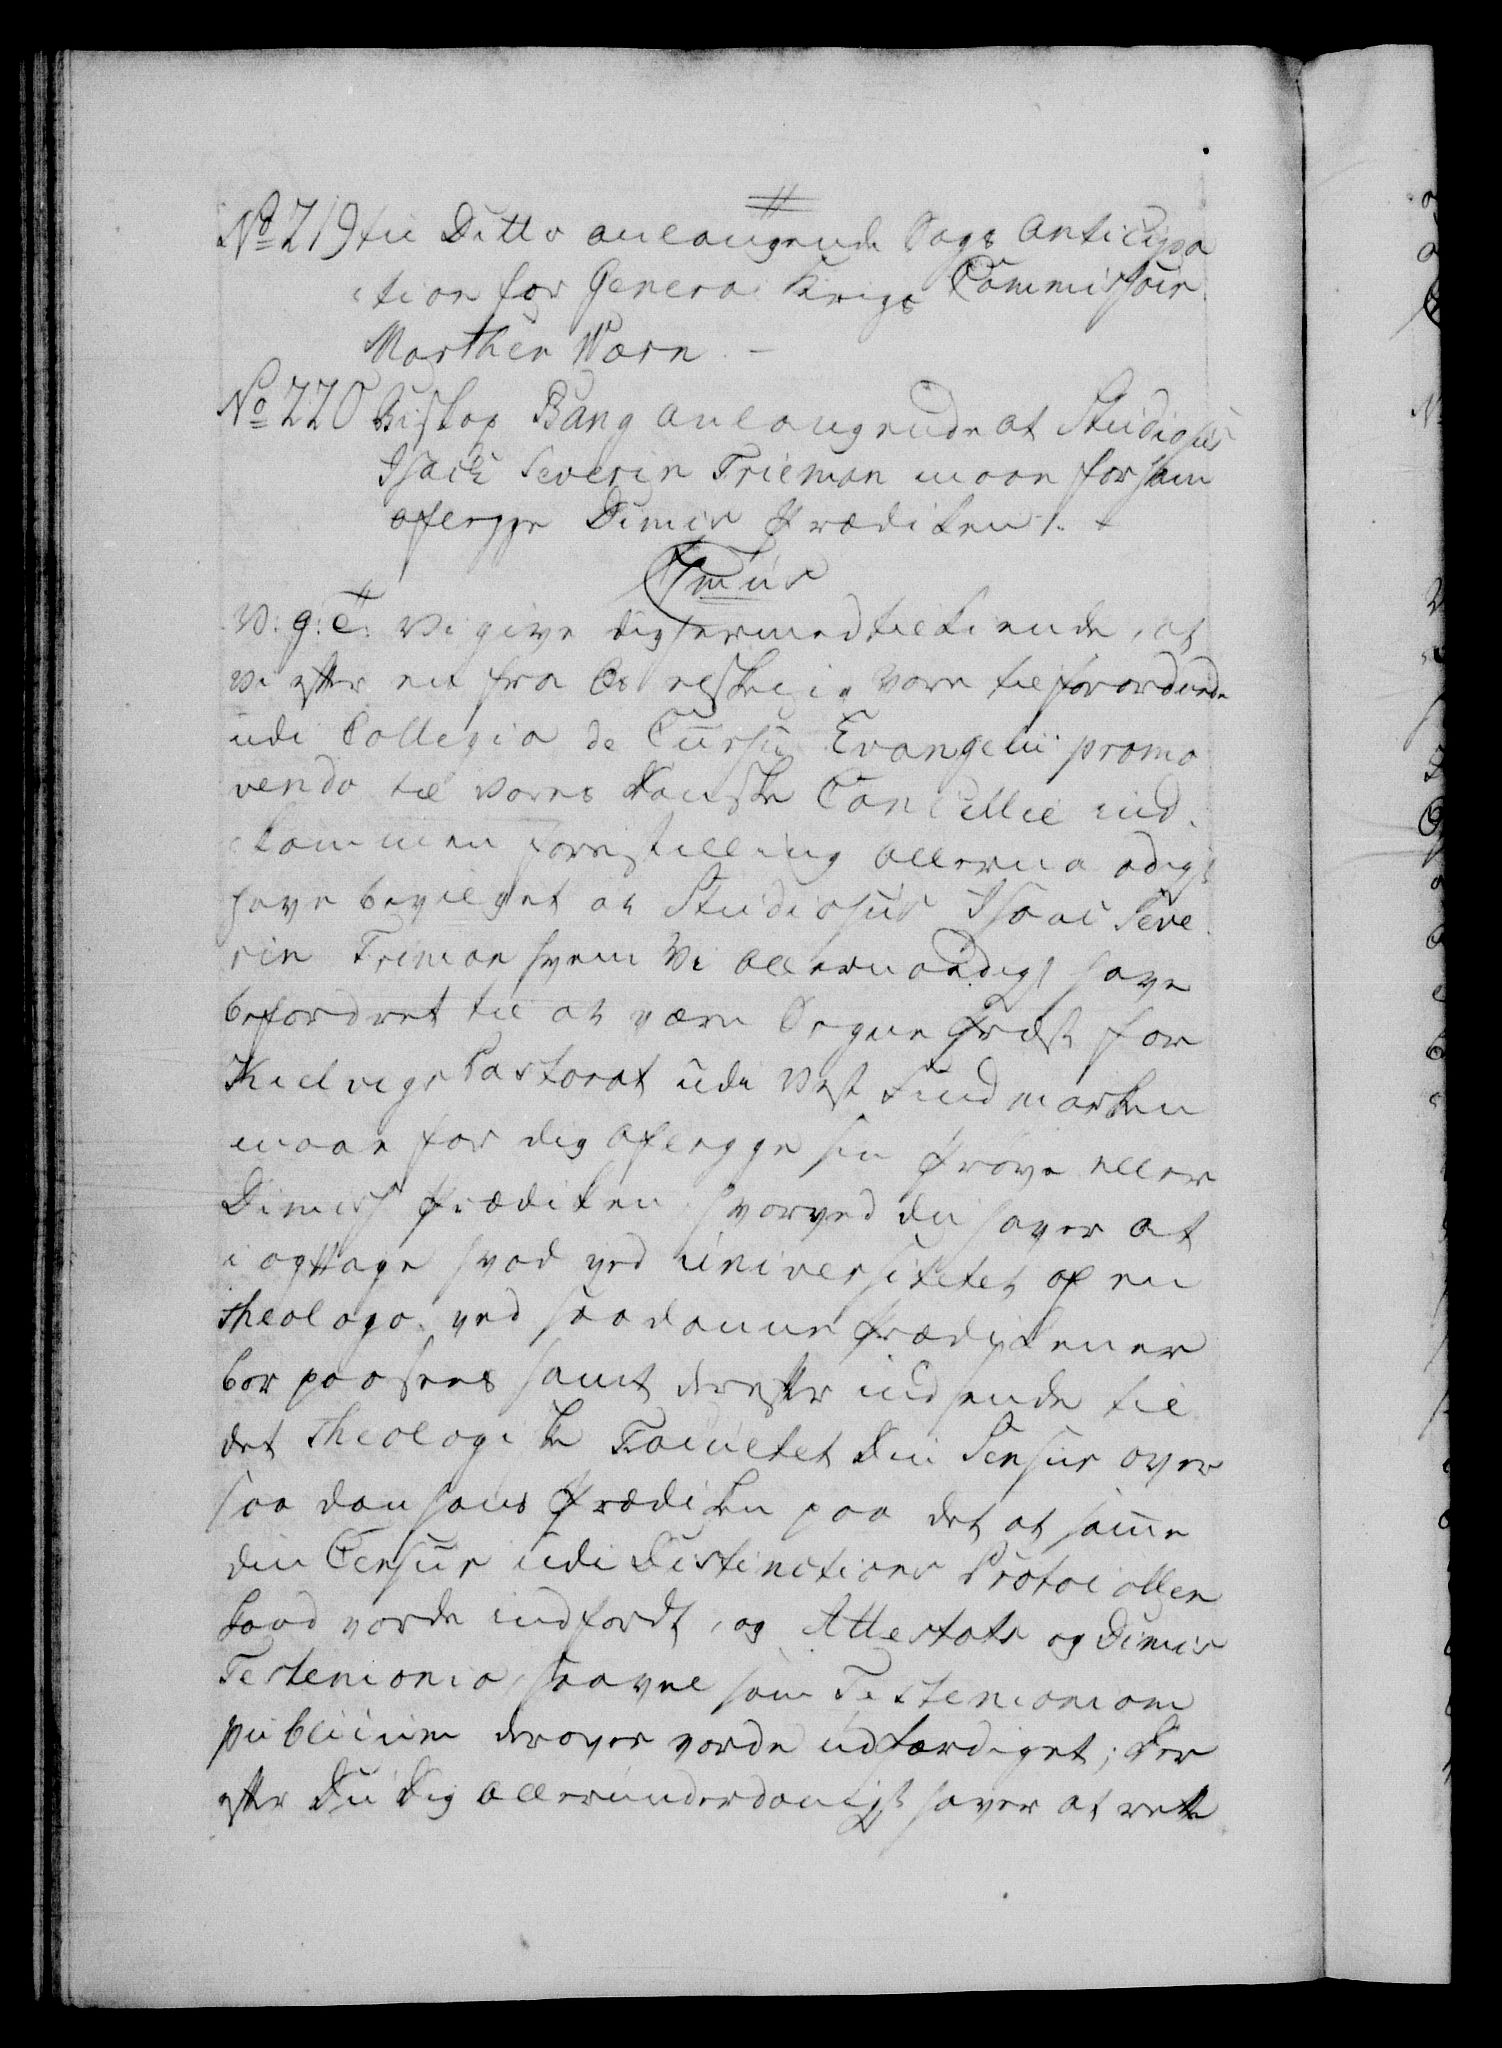 No 219 til Ditto anlangende Sags Anticipa
tion for General Krigs Commissair
Morthen Wærn. -
No 220 Biskop Bang anlangende at Studiosus
Isach Severin Frieman maae for ham
aflegge Dimis Prædiken /.
Fr: 5tus
V: g: T: Vi give dig hermed tilkiende, at
Vi efter een fra Os elskelige Vore tilforordnede
udi Collegio de Cursu Evangelii promo
vendo til vores Danske Cancellie ind-
kommen forestilling allernaadigst
have bevilget at Studiosus Isaac Seve
rin Friman hvem Vi allernaadigst have
befordret til at være Sogne Præst for
Kielvigs Pastorat udi Vest Findmarken
maae for dig aflegge sin Prøve eller
Dimiss Prædiken, hvorved du haver at
i agttage hvad ved Universitetet af en
Theologo ved saadanne Prædikener
bør paasees samt derefter indsende til
det Theologiske Facultet Din Censur over
saadan hans Prædiken paa det at samme
din Censur udi Distinctions Protocollen
kand vorde indført, og Attestats og Dimis
Testemonio, saavel som Testemonium
publicum derover vorde udfærdiget; Der
efter Du Dig allerunderdanigst haver at rette